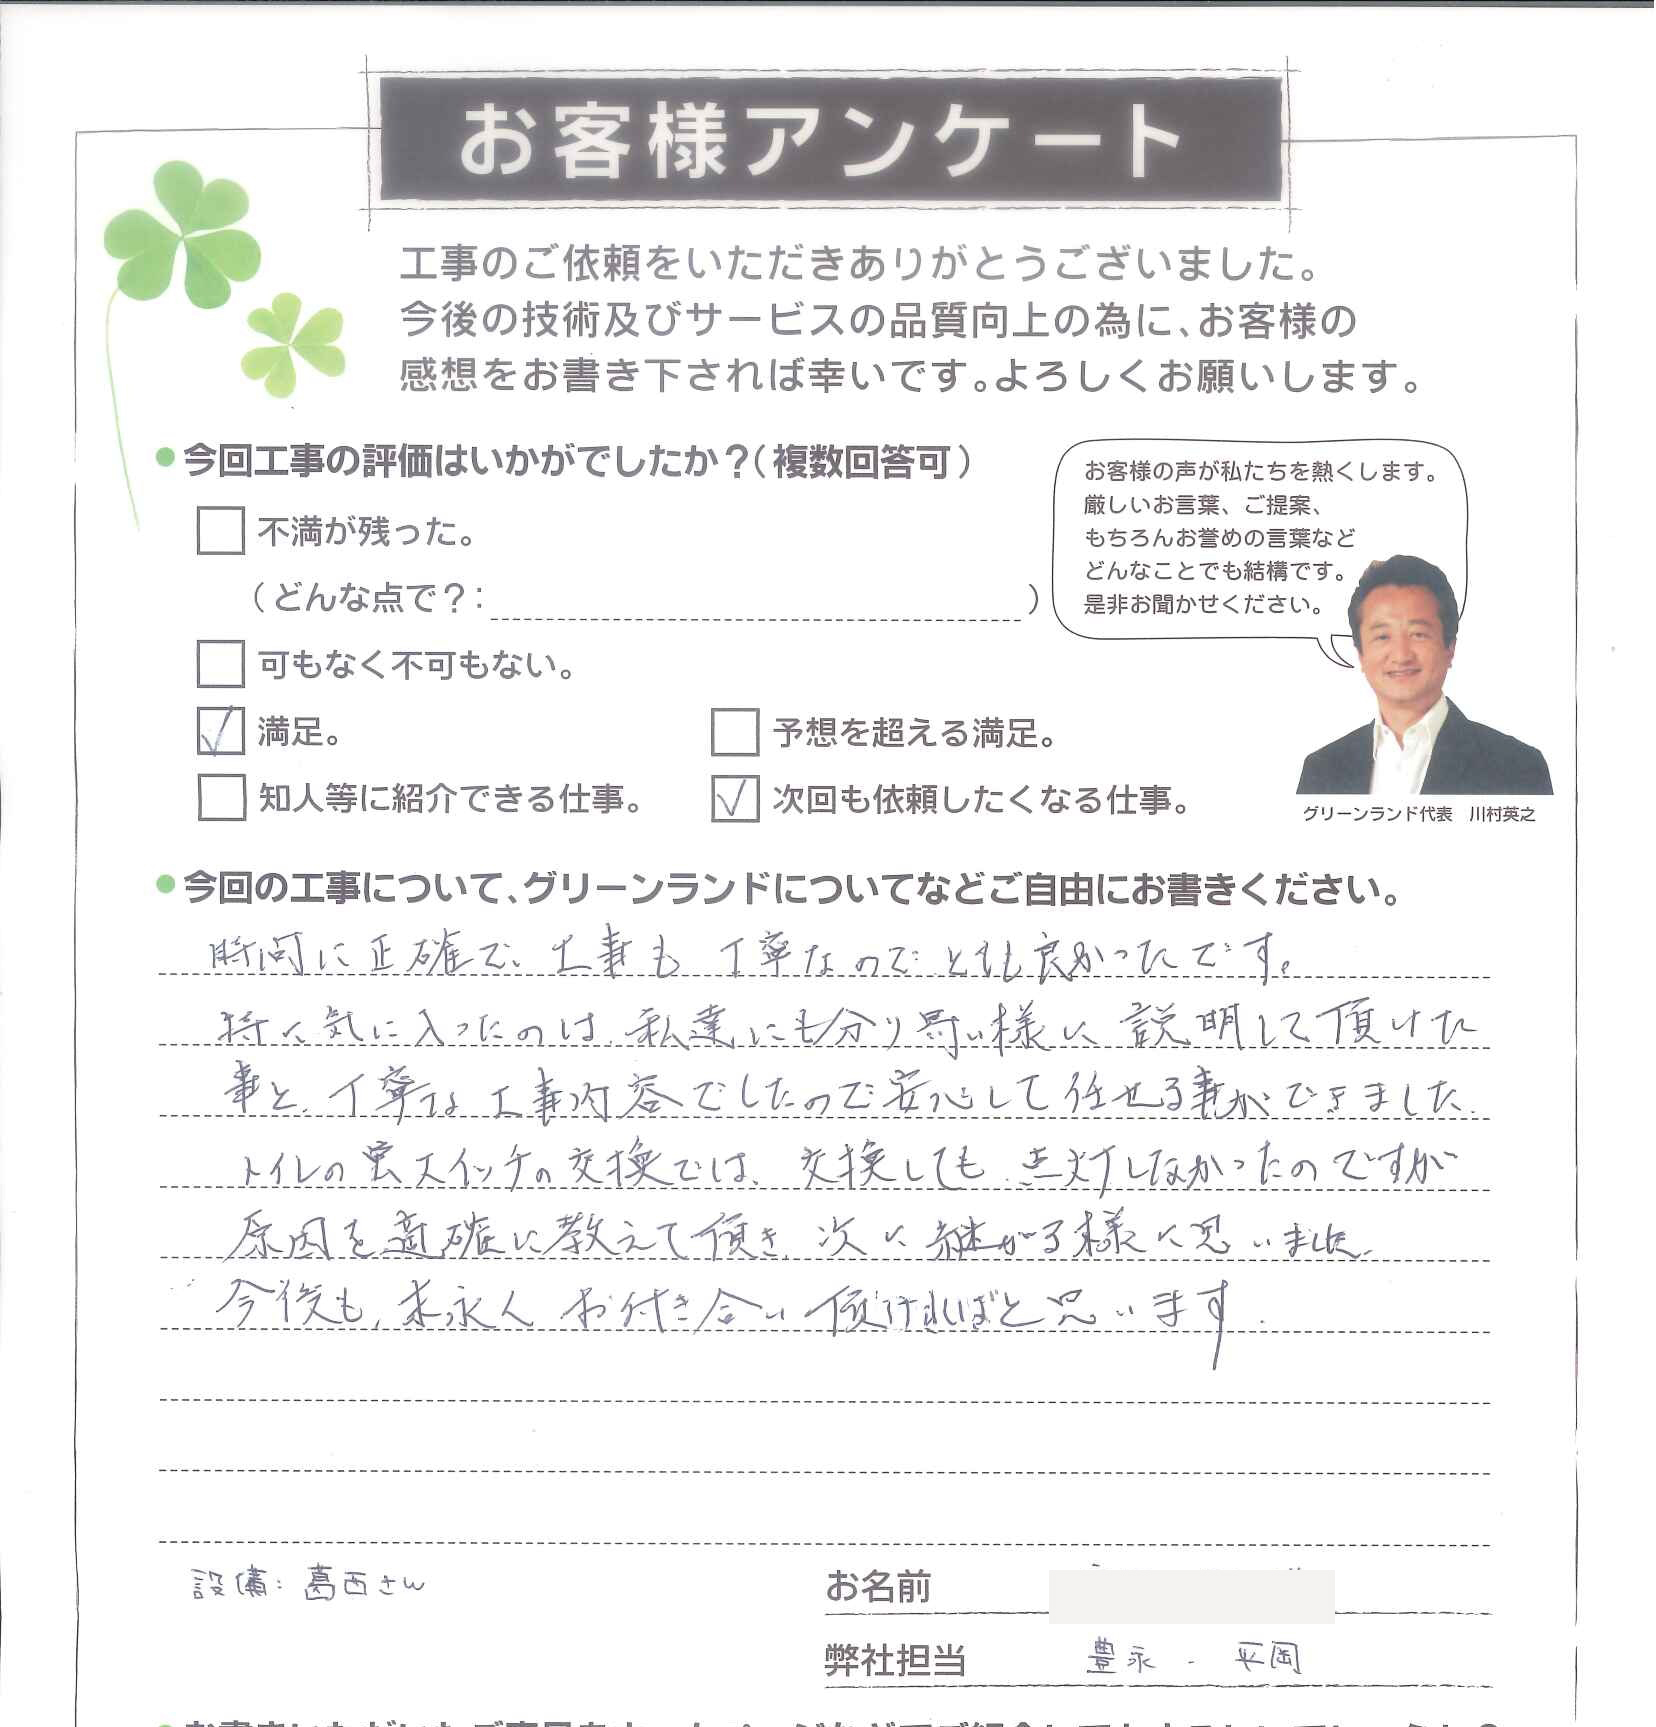 お客様アンケート
工事のご依頼をいただきありがとうございました。
今後の技術及びサービスの品質向上の為に、お客様の
感想をお書き下されば幸いです。よろしくお願いします。
●今回工事の評価はいかがでしたか？（複数回答可）
不満が残った。
（どんな点で？： ）
可もなく不可もない。
満足。
予想を超える満足。
知人等に紹介できる仕事。
次回も依頼したくなる仕事。
お客様の声が私たちを熱くします。
厳しいお言葉、ご提案、
もちろんお誉めの言葉など
どんなことでも結構です。
是非お聞かせください。
グリーンランド代表　川村英之
●今回の工事について、グリーンランドについてなどご自由にお書きください。
時間に正確で、工事も 丁寧なのでとても良かったです。
特に気に入ったのは、私達にも分り易い様に 説明して頂けた
事と、丁寧な工事内容でしたので安心して任せる事ができました。
トイレの蛍スイッチの交換では、交換しても点灯しなかったのですが
原因を適確に教えて頂き、次に継がる様に思いました。
今後も、末永く お付き合い頂ければと思います.
設備：葛西さん
お名前
弊社担当 豊永 - 平岡